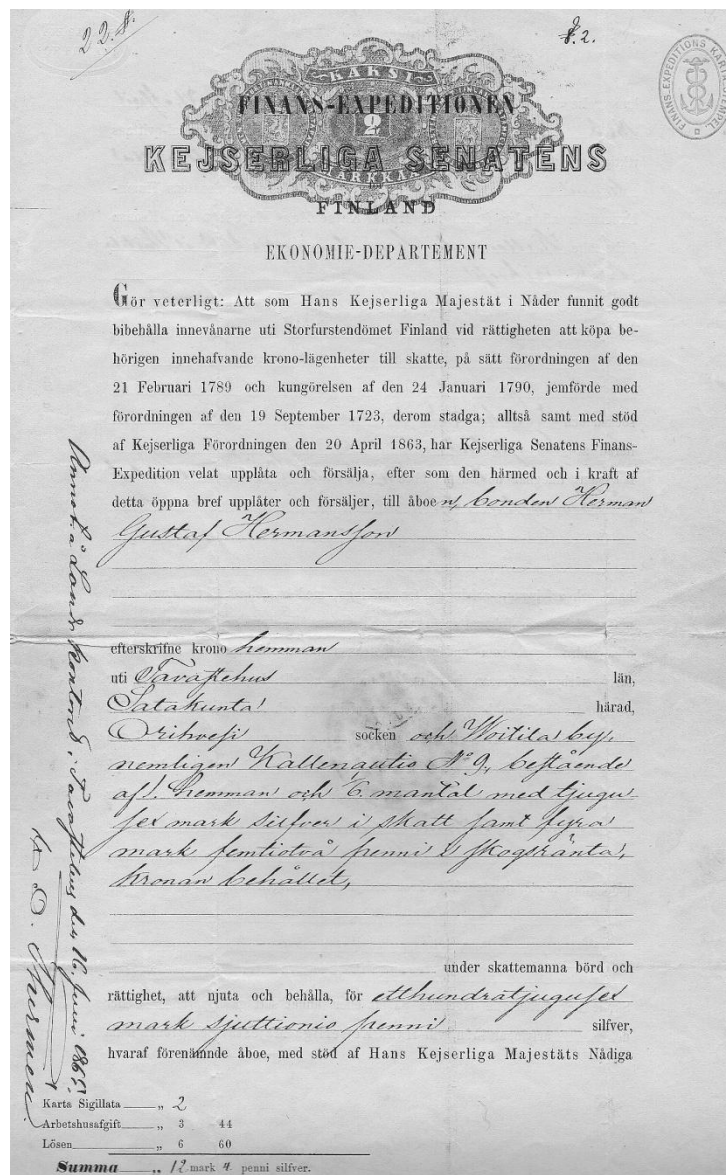 22.
2.
KAKSI
FINANS-EXPEDITIONEN
2
KEJSERLIGA SENATENS
MARKKAA
FINLAND
FINANS-EXPEDITIONS KARTÆ STÆMPEL
EKONOMIE-DEPARTEMENT
Gör veterligt: Att som Hans Kejserliga Majestät i Nåder funnit godt
bibehålla innevånarne uti Storfurstendömet Finland vid rättigheten att köpa be-
hörigen innehafvande krono-lägenheter till skatte, på sätt förordningen af den
21 Februari 1789 och kungörelsen af den 24 Januari 1790, jemförde med
förordningen af den 19 September 1723, derom stadga; alltså samt med stöd
af Kejserliga Förordningen den 20 April 1863, har Kejserliga Senatens Finans-
Expedition velat upplåta och försälja, efter som den härmed och i kraft af
detta öppna bref upplåter och försäljer, till åboen, bonden Herman
Gustaf Hermansson
efterskrifne krono hemman
uti Tavastehus län,
Satakunta härad,
Orihvesi socken och Woitila by,
nemligen Kallenautio No 9, bestående
af hemman och mantal med tjugu-
sex mark silfver i skatt samt fyra
mark femtiotvå penni i skogsränta,
Kronan behållet,
under skattemanna börd och
rättighet, att njuta och behålla, för etthundratjugusex
mark sjuttionio penni silfver,
hvaraf förenämnde åboe, med stöd af Hans Kejserliga Majestäts Nådiga
Karta Sigillata „ 2
Arbetshusafgift „ 3 44
Lösen „ 6 60
Summa „ 12 mark 4 penni silfver.
å Lands Kontoret i Tavastehus den 16. Juni